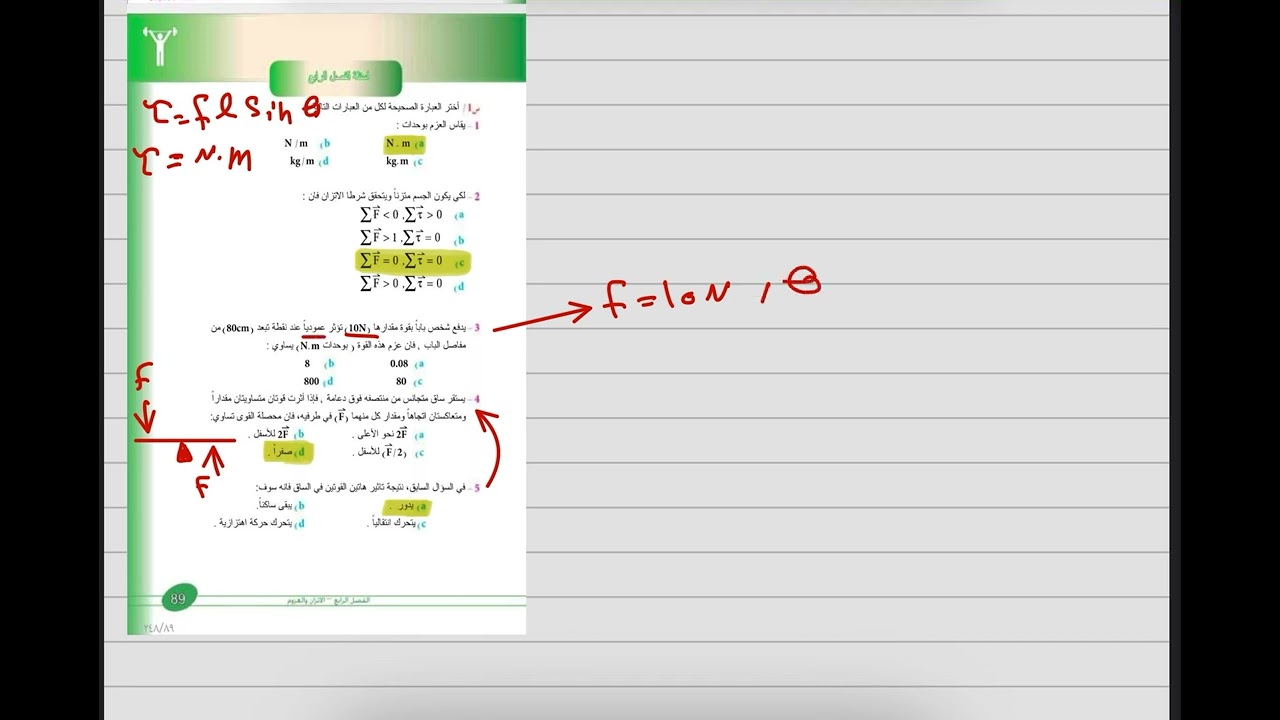 اسئلة الفصل الرابع
س1/ أختر العبارة الصحيحة لكل من العبارات
1 – يقاس العزم بوحدات :
a) N . m b) N / m
c) kg. m d) kg/ m
2 – لكي يكون الجسم متزناً ويتحقق شرطا الاتزان فان :
a) ∑F⃗ < 0 ,∑τ⃗ > 0
b) ∑F⃗ > 1 ,∑τ⃗ = 0
c) ∑F⃗ = 0 ,∑τ⃗ = 0
d) ∑F⃗ > 0 ,∑τ⃗ = 0
3 – يدفع شخص باباً بقوة مقدارها (10N) تؤثر عمودياً عند نقطة تبعد (80cm) من
مفاصل الباب , فان عزم هذه القوة ( بوحدات N.m) يساوي :
a) 0.08 b) 8
c) 80 d) 800
4 – يستقر ساق متجانس من منتصفه فوق دعامة , فإذا أثرت قوتان متساويتان مقداراً
ومتعاكستان اتجاهاً ومقدار كل منهما (F⃗) في طرفيه، فان محصلة القوى تساوي:
a) 2F⃗ نحو الأعلى . b) 2F⃗ للأسفل .
c) (F⃗/2) للأسفل . d) صفراً .
5 – في السؤال السابق، نتيجة تاثير هاتين القوتين في الساق فانه سوف:
a) يدور . b) يبقى ساكناً.
c) يتحرك انتقالياً . d) يتحرك حركة اهتزازية .
89 الفصل الرابع – الاتزان والعزوم
٢٤٨/٨٩
τ = f l sin θ
τ = N.m
f = 10N , θ
F
F